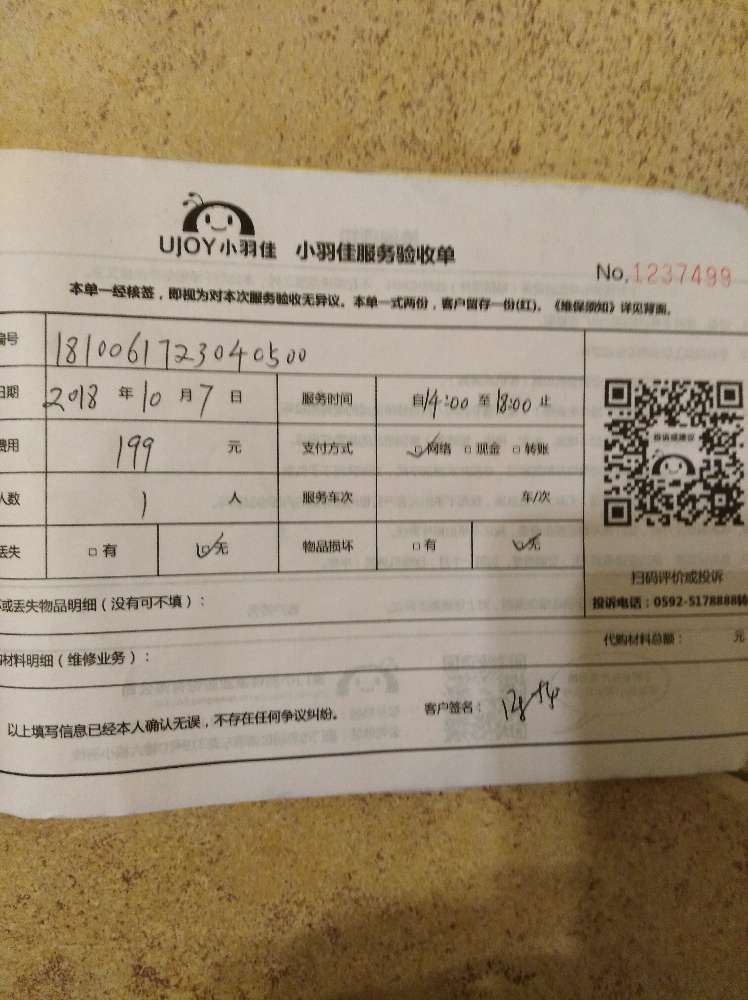 UJOY小羽佳 小羽佳服务验收单
No.1237499
本单一经核签，即视为对本次服务验收无异议。本单一式两份，客户留存一份(红)。《维保须知》详见背面。
编号 1810061723040500
日期 2018 年 10 月 7 日 服务时间 自14:00 至 18:00 止
费用 199 元 支付方式 ☑网络 □现金 □转账
人数 1 人 服务车次 车/次
丢失 □有 ☑无 物品损坏 □有 ☑无
投诉或建议
扫码评价或投诉
投诉电话：0592-5178888转
坏或丢失物品明细（没有可不填）：
代购材料总额： 元
购材料明细（维修业务）：
以上填写信息已经本人确认无误，不存在任何争议纠纷。 客户签名：